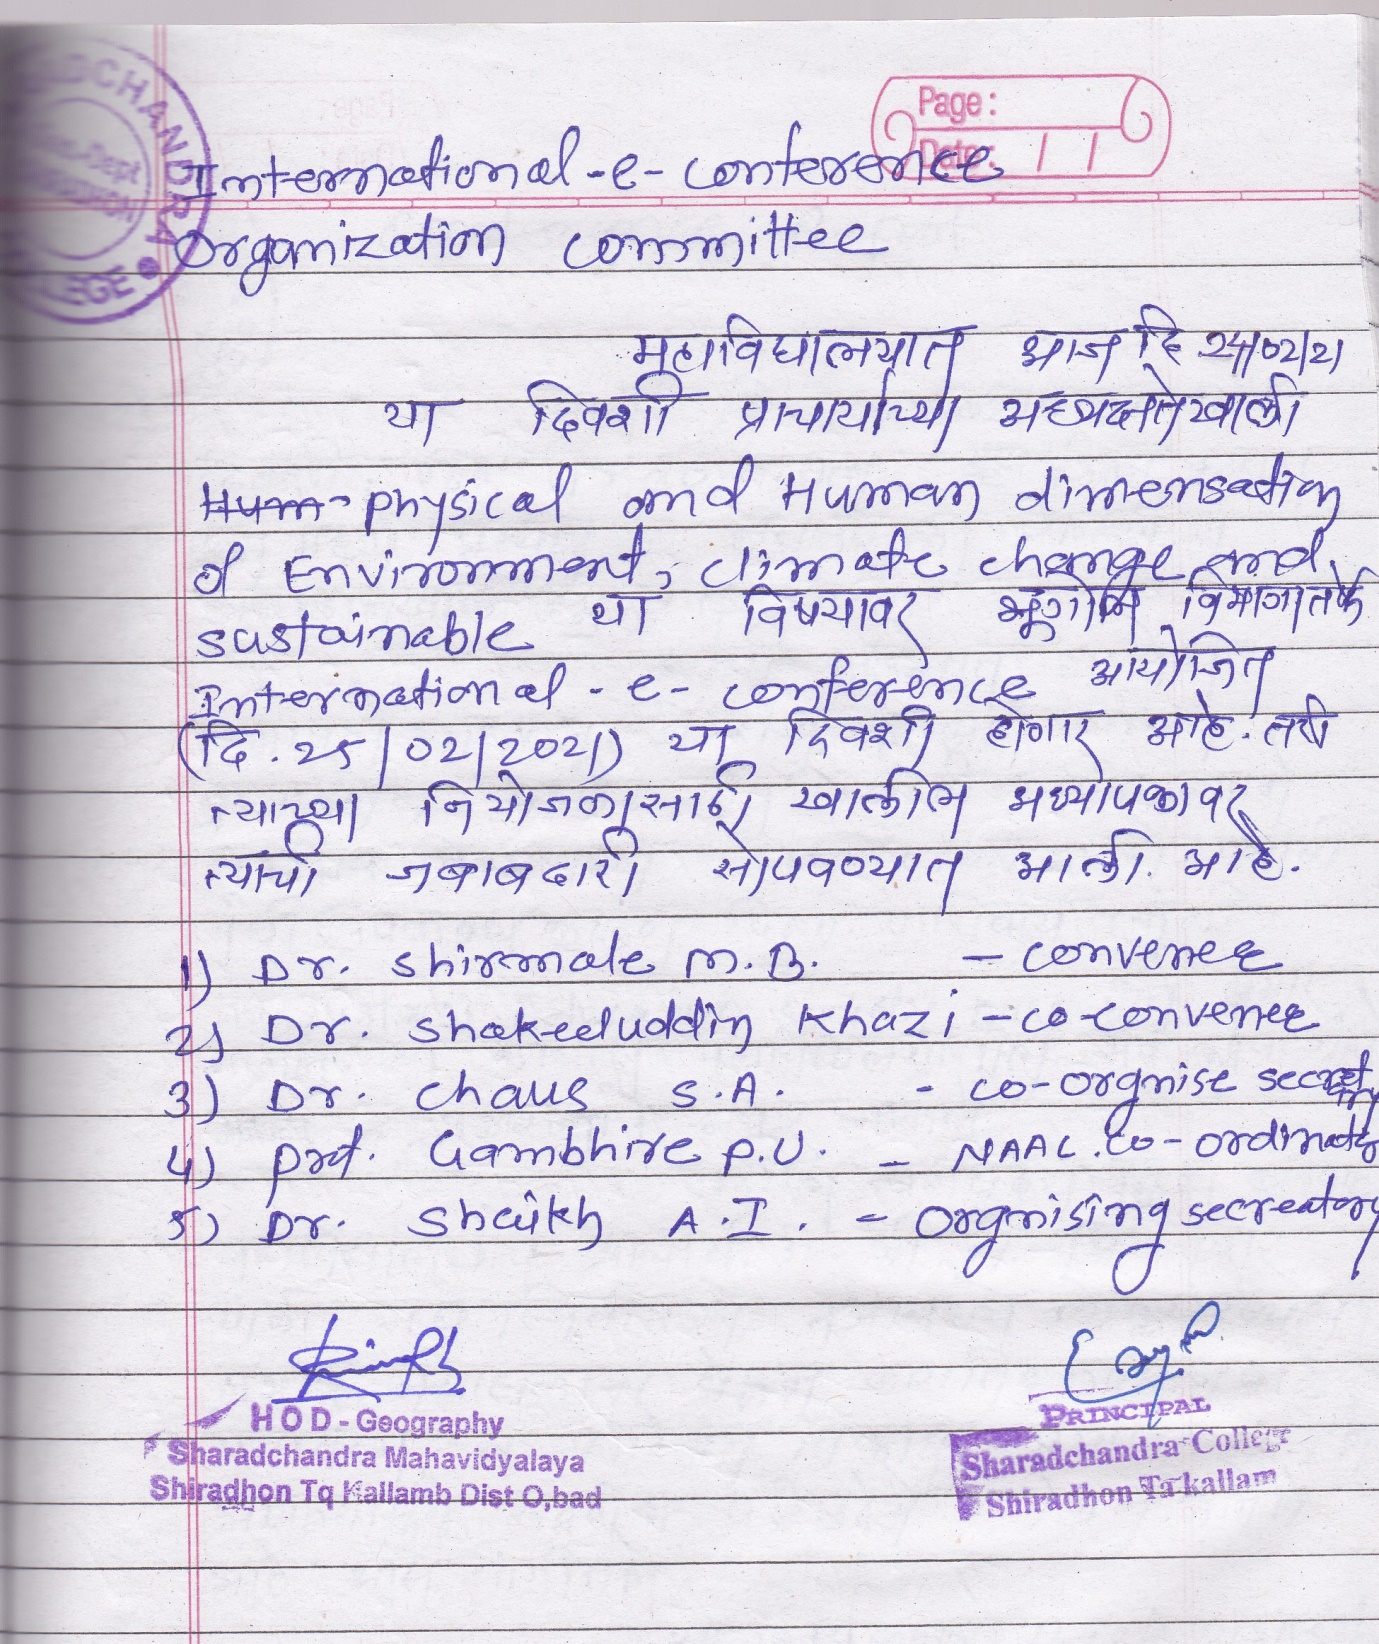 Page :
Date : / /
International-e-conference
organization committee
महाविद्यालयात आज दि 24/02/21
या दिवशी प्राचार्यांच्या अध्यक्षतेखाली
Hum physical and Human dimensation
of Environment, climate change and
sustainable या विषयावर भूगोल विभागातर्फे
International-e-conference आयोजित
(दि. 25/02/2021) या दिवशी होणार आहे. तरी
त्याच्या नियोजनासाठी खालील अध्यापकावर
त्यांची जबाबदारी सोपवण्यात आली. आहे.
1) Dr. Shirmale M.B. - convener
2) Dr. Shakeeluddin Khazi - co-convener
3) Dr. Chaus S.A. - co-orgnise secretry
4) Prof. Gambhire P.U. - NAAC.co-ordinator
5) Dr. Shaikh A.I. - orgnising secreatory
HOD - Geography
Sharadchandra Mahavidyalaya
Shiradhon Tq Kallamb Dist O,bad
PRINCIPAL
Sharadchandra College
Shiradhon Ta kallam